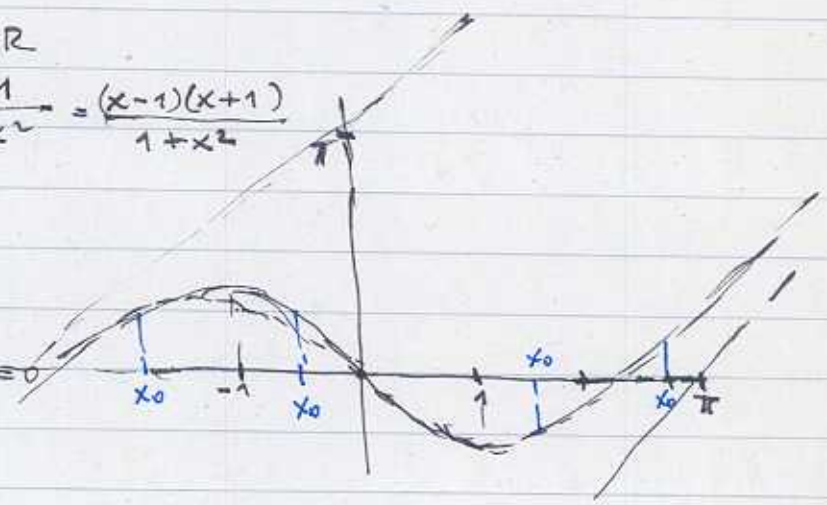 R
1/x² = (x-1)(x+1)/1+x²
π
=0
x₀
x₀ -1 x₀ 1 x₀ π